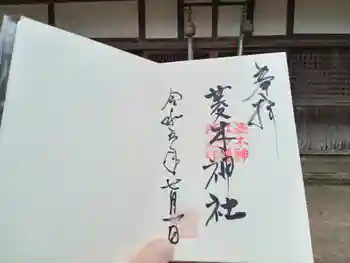 奉拝
菱木神社
令和六年七月一日